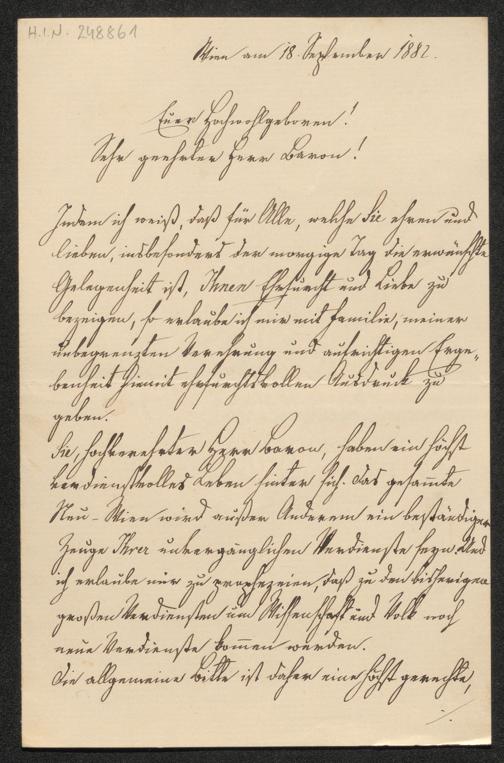 H.I.N. 248861
Wien am 18. September 1882.
Euer Hochwohlgeboren!
Sehr geehrter Herr Baron!
Indem ich weiß, daß für Alle, welche Sie ehren und
lieben, insbesonders der morgige Tag die erwünschte
Gelegenheit ist, Ihnen Ehrfurcht und Liebe zu
bezeigen, so erlaube ich mir mit Familie, meiner
unbegrenzten Verehrung und aufrichtigen Erge-
benheit hiemit ehrfurchtsvollen Ausdruck zu
geben.
Sie, hochverehrter Herr Baron, haben ein höchst
verdienstvolles Leben hinter sich. Das gesammte
Neu-Wien wird außer Anderem ein beständiger
Zeuge Ihrer unvergänglichen Verdienste seyn. Und
ich erlaube mir zu prophezeien, daß zu den bisherigen
großen Verdiensten um Wissenschaft und Volk noch
neue Verdienste kommen werden.
Die allgemeine Bitte ist daher eine höchst gerechte,
./.